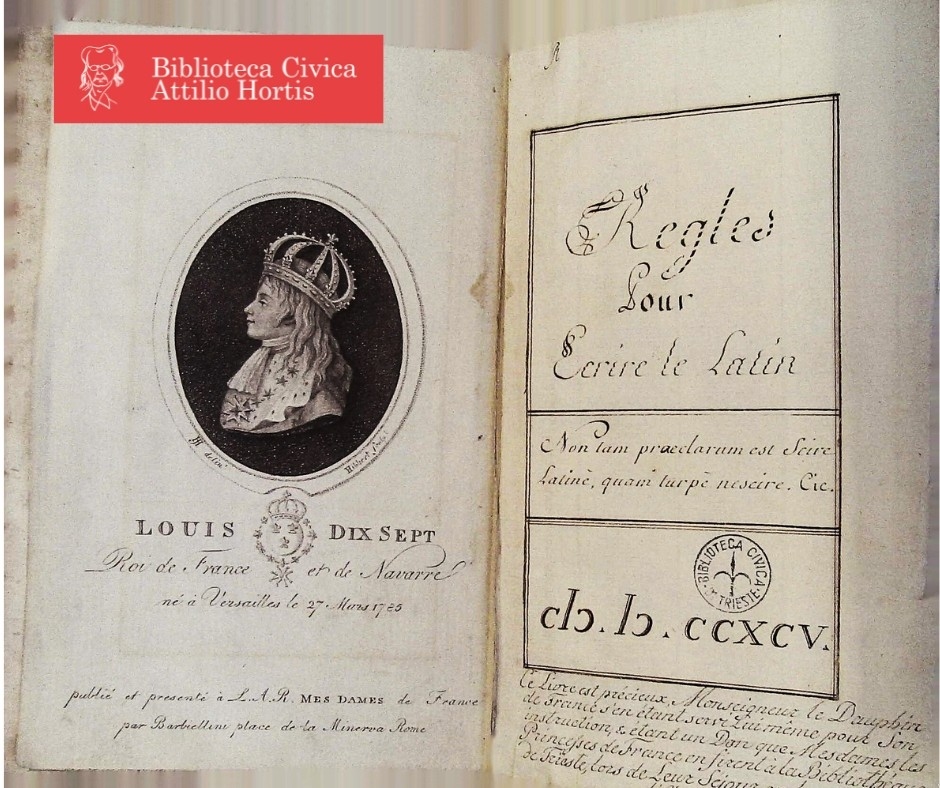 Biblioteca Civica
Attilio Hortis
LOUIS DIX SEPT
Roi de France et de Navarre
né à Versailles le 27 Mars 1785
publié et presenté à L.A.R. MES DAMES de France
par Barbiellini place de la Minerva Rome
Regles
Pour
Ecrire le Latin
Non tam praeclarum est Scire
Latinè, quam turpè nescire. Cic.
BIBLIOTECA CIVICA
TRIESTE
cIↄ. Iↄ. CCXCV.
Ce Livre est précieux, Monseigneur le Dauphin
de France s'en étant servi Lui même pour Son
instruction, & étant un Don que Mesdames les
Princesses de France en firent à la Bibliothéque
de Trieste, lors de Leur Séjour